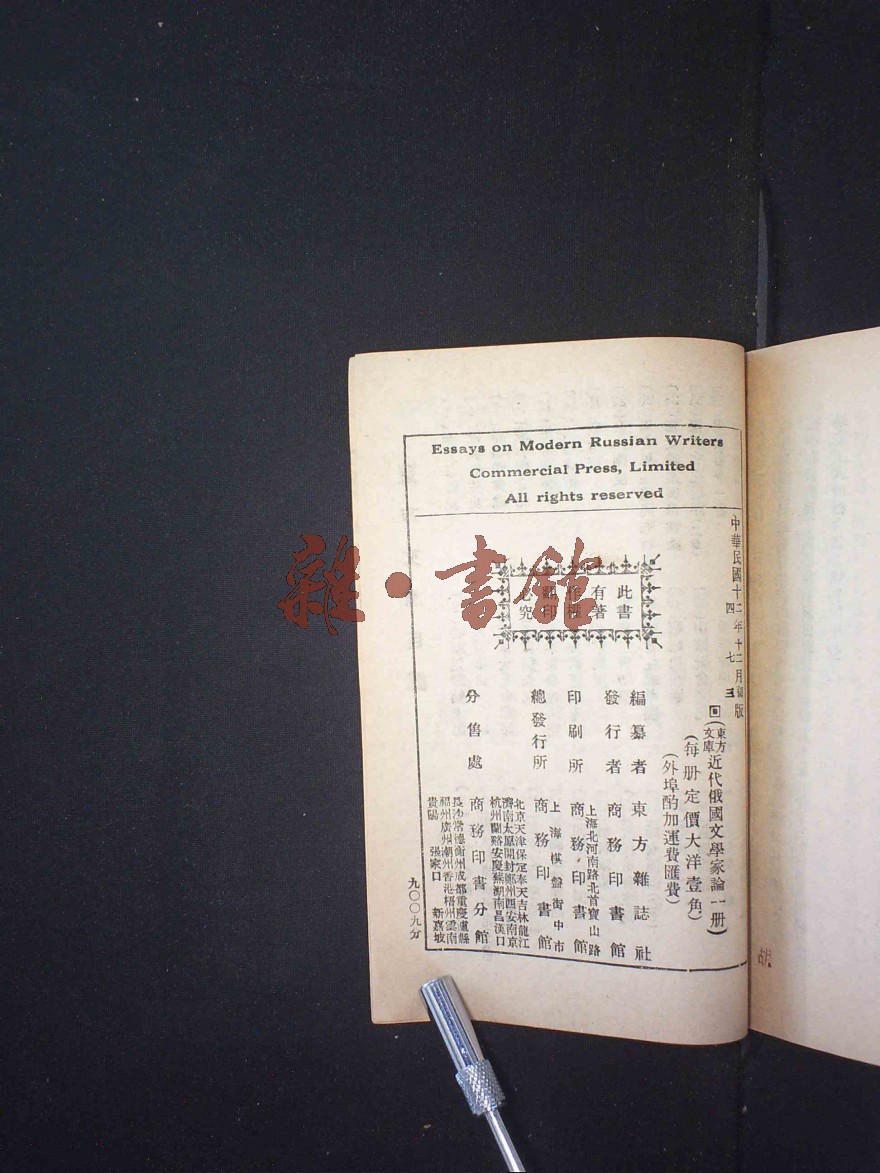 Essays on Modern Russian Writers
Commercial Press, Limited
All rights reserved
中華民國十二年十二月初版
四 七 三
此書
有著
作權
翻印
必究
(東方文庫)近代俄國文學家論一册)
(每册定價大洋壹角)
(外埠酌加運費匯費)
編纂者 東方雜誌社
發行者 商務印書館
上海北河南路北首寶山路
印刷所 商務印書館
上海棋盤街中市
總發行所 商務印書館
北京天津保定奉天吉林龍江
濟南太原開封鄭州西安南京
杭州蘭谿安慶蕪湖南昌漢口
分售處 商務印書分館
長沙常德衡州成都重慶瀘縣
福州廣州潮州香港梧州雲南
貴陽 張家口 新嘉坡
九〇〇九分
胡
雜·書館